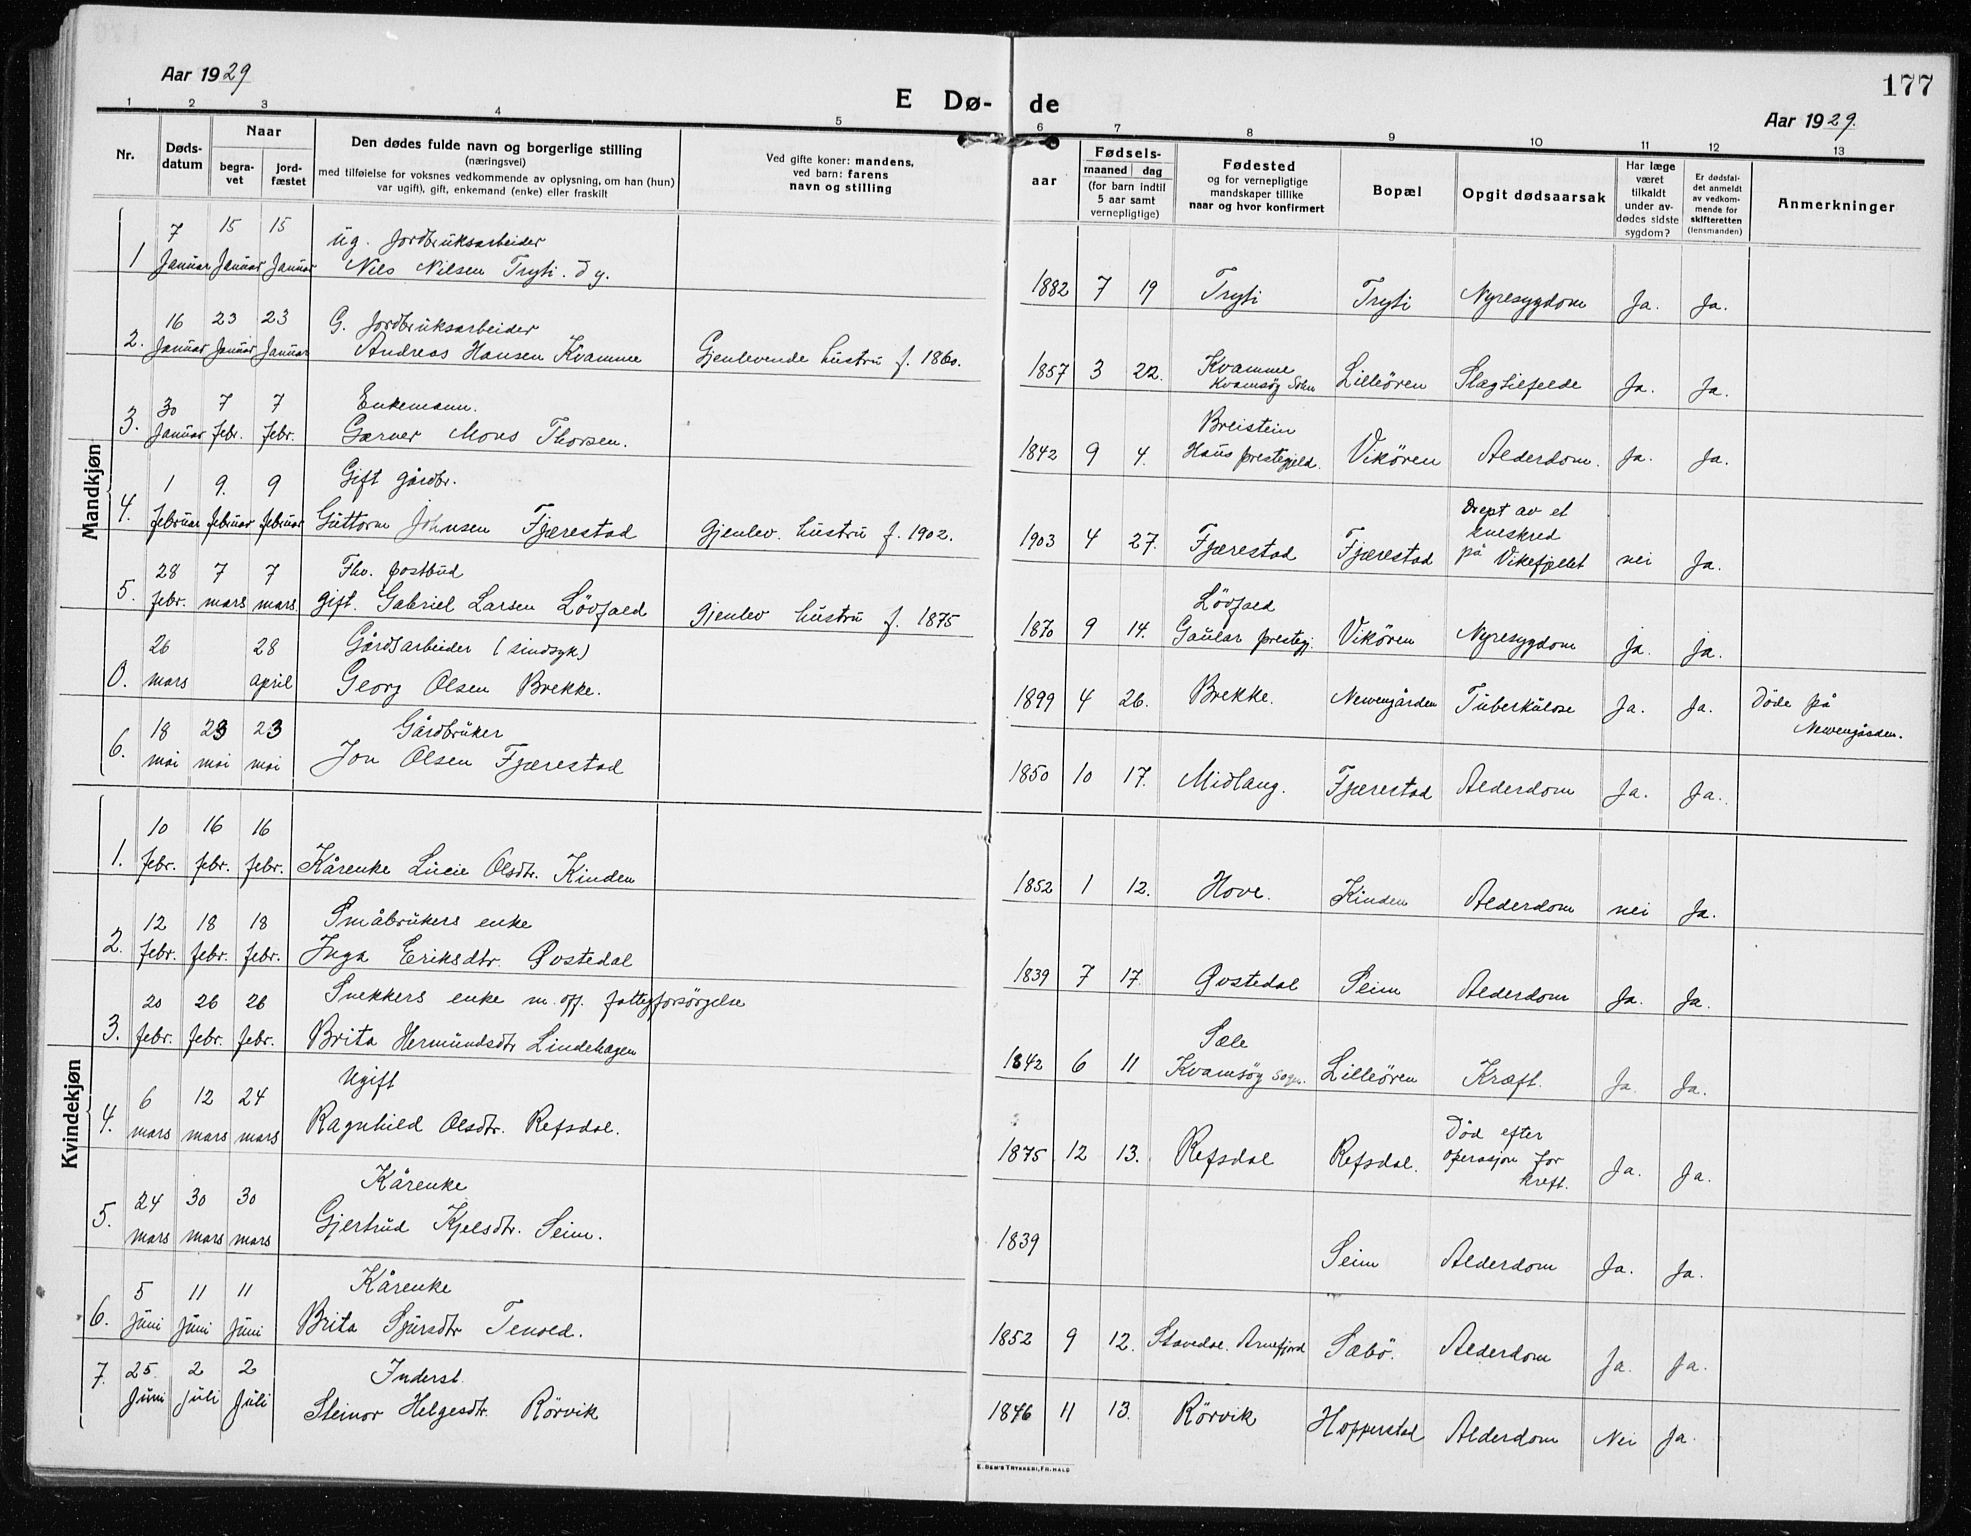 Aar 1929
E Dø- de
177
Aar 1929.
1 2 3 4 5 6 7 8 9 10 11 12 13
Nr.
Døds-
datum
Naar
begra-
vet
jord-
fæstet
Den dødes fulde navn og borgerlige stilling
(næringsvei)
med tilføielse for voksnes vedkommende av oplysning, om han (hun)
var ugift), gift, enkemand (enke) eller fraskilt
Ved gifte koner: mandens,
ved barn: farens
navn og stilling
aar
Fødsels-
maaned dag
(for barn indtil
5 aar samt
vernepligtige)
Fødested
og for vernepligtige
mandskaper tillike
naar og hvor konfirmert
Bopæl
Opgit dødsaarsak
Har læge
været
tilkaldt
under av-
dødes sidste
sygdom?
Er dødsfal-
det anmeldt
av vedkom-
mende for
skifteretten
(lensmanden)
Anmerkninger
Mandkjøn
7 15 15 ug. Jordbruksarbeider
1 Januar Januar Januar Nils Nilsen Tryti. d y. 1882 7 19 Tryti Tryti Nyresygdom Ja. Ja.
16 23 23 G. Jordbruksarbeider
2. Januar Januar Januar Andreas Hansen Kvamme Gjenlevende hustru f. 1860. 1857 3 22. Kvamme
Kvamsøy Sokn Lilleören Slagtilfelde Ja. Ja.
30 7 7 Enkemann.
3. Januar febr. febr. Garver Mons Thorsen. 1842 9 4. Breistein
Haus prestegjeld. Vikören Alderdom. Ja. Ja.
1 9. 9 Gift gårdbr.
4. februar februar februar Guttorm Johnsen Fjærestad Gjenlev. hustru f. 1902. 1903 4 27. Fjærestad Fjærestad Drept av et
sneskred
på Vikefjellet nei Ja.
28 7 7 Fhv. postbud
5. febr. mars mars. gift. Gabriel Larsen Lövfald Gjenlev hustru f. 1875 1870 9 14. Lövfald
Gaular prestegj. Vikören Nyresygdom ja. ja.
26 28 Gårdsarbeider (sindsyk)
0. mars april Georg Olsen Brekke. 1899 4 26. Brekke. Nevengården Tuberkulose Ja. Ja. Döde på
Nevengården.
18 23 23 Gårdbruker
6. mai mai mai Jon Olsen Fjærestad 1850 10 17. Midlang. Fjærestad Alderdom Ja. Ja.
Kvindekjøn
10 16 16
1. febr. febr. febr. Kårenke Lucie Olsdtr. Kinden 1852 1 12. Hove. Kinden Alderdom nei Ja.
12 18 18 Småbrukers enke
2. febr. febr. febr. Inga Eriksdtr. Øvstedal 1839 7 17. Øvstedal Seim Alderdom Ja. Ja.
20 26 26 Snekkers enke m. off. fattigforsörgelse
3. febr. febr. febr. Brita Hermundsdtr Lindehagen 1842 6 11 Sæle
Kvamsöy sogn. Lilleören Kræft. Ja. Ja.
6 12 24 Ugift
4. mars mars mars Ragnhild Olsdtr. Refsdal. 1875 12 13. Refsdal Refsdal. Död efter
operasjon for
kreft. Ja. Ja.
24 30 30 Kårenke
5. mars mars mars Gjertrud Kjelsdtr. Seim. 1839 Seim Alderdom Ja. Ja.
5 11 11 Kårenke
6. Juni Juni Juni Brita Sjursdtr Tenold. 1852 9 12. Stavedal. Arnefjord Sæbö. Alderdom Ja. Ja.
25. 2 2 Inderst.
7. Juni juli Juli Steinor Helgesdtr. Rörvik 1846 11 13. Rörvik Hopperstad Alderdom Nei Ja.
E. SEM'S TRYKKERI, FR.HALD